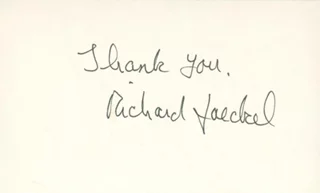 Thank you.
Richard Jaeckel